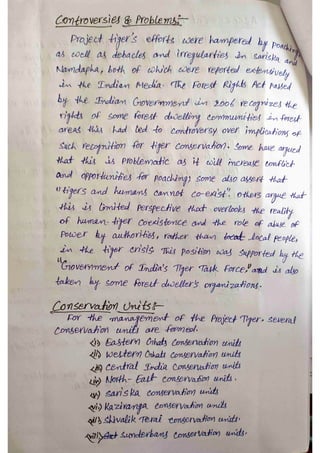 Controversies & Problems:-
Project tiger's efforts were hampered by poaching
as well as debacles and irregularities in sariska and
Namdapha, both of which were reported extensively
in the Indian Media. The Forest Rights Act passed
by the Indian Government in 2006 recognizes the
rights of some forest dwelling communities in forest
areas this had led to controversy over implications of
such recognition for tiger conservation. Some have argued
that this is problematic as it will increase conflict
and opportunities for poaching; some also assert that
"tigers and humans cannot co-exist". others argue that
this is limited perspective that overlooks the reality
of human tiger coexistence and the role of abuse of
power by authorities, rather than local people,
in the tiger crisis. This position was supported by the
"Government of India's Tiger Task Force," and is also
taken by some forest dweller's organizations.
Conservation Units:-
For the management of the Project Tiger. several
conservation units are formed.
(i) Eastern Ghats Conservation units
(ii) Western Ghats conservation units
(iii) Central India Conservation units
(iv) North-East conservation units.
(v) sariska conservation units
(vi) Kaziranga conservation units
(vii) Shivalik Terai conservation units.
(viii) sunderbans conservation units.